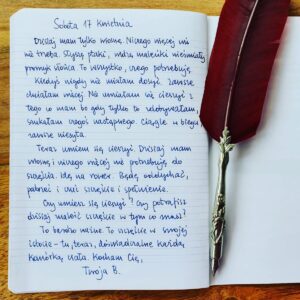 Sobota 17 kwietnia
Dzisiaj mam tylko wiosnę. Niczego więcej mi
nie trzeba, słyszę ptaki, widzę
promyk słońca. To wszystko, czego potrzebuję.
Kiedyś nigdy nie miałam dosyć. Zawsze
chciałam więcej. Nie umiałam się cieszyć z
tego co mam bo gdy tylko to zdobywałam,
szukałam czegoś następnego. Ciągle w biegu
zawsze niesyta.
Teraz umiem się cieszyć. Dzisiaj mam
wiosnę i niczego więcej nie potrzebuję do
szczęścia. Idę na rower. Będę oddychać,
patrzeć i czuć szczęście i spełnienie.
Czy umiesz się cieszyć? Czy potrafisz
dzisiaj znaleźć szczęście w tym co masz?
To bardzo ważne. To szczęście w swojej
istocie - tu, teraz, doświadczalne każdą
komórką ciała. Kocham Cię,
Twoja B.